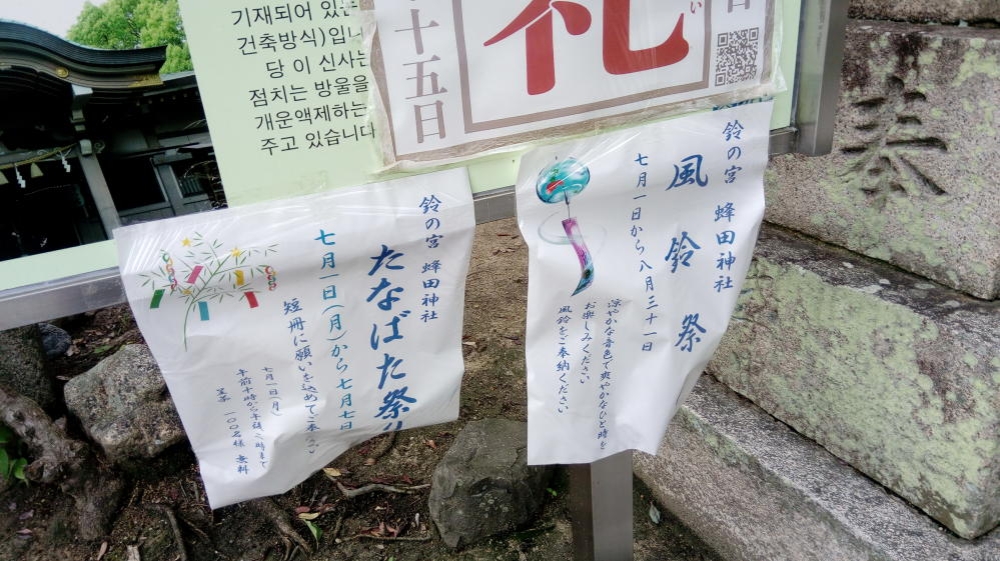 기재되어 있는
건축방식)입니
당 이 신사는
점치는 방울을
개운액제하는
주고 있습니다
十五日
礼
い
鈴の宮 蜂田神社
たなばた祭り
七月一日(月)から七月七日
短冊に願いを込めてご奉
七月一日(月)
午前十時から
一〇〇名様 無料
鈴の宮 蜂田神社
風鈴祭
七月一日から八月三十一日
涼やかな音色で爽やかなひと時を
お楽しみください
風鈴をご奉納ください
奉